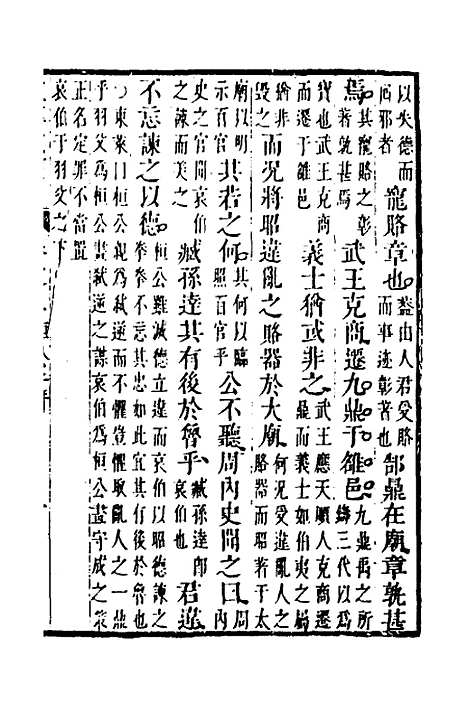 以失德而爲邪者寵賂章也蓋由人君受賂而事迹彰者也郜鼎在廟章孰甚
焉其寵賂之彰著孰甚焉武王克商遷九鼎于雒邑九鼎禹之所鑄三代以爲
寶也武王克商而遷于雒邑義士猶或非之武王應天順人克商遷鼎而義士如伯夷之屬
猶非毀之而況將昭違亂之賂器於大廟何況受違亂人之賂器而昭著于太
廟以明示百官其若之何其何以臨照百官乎公不聽周內史聞之曰周內
史之官聞哀伯之諫而美之臧孫達其有後於魯乎臧孫達即哀伯也君違
不忘諫之以德桓公雖滅德立違而哀伯以昭德諫之拳拳不忘其忠如此宜其有後於魯也
○東萊曰桓公親爲弒逆而不懼豈懼取亂人之一鼎乎羽父爲桓公畫弒逆之謀哀伯爲桓公畫守成之策
正名定罪不當置哀伯于羽父之下